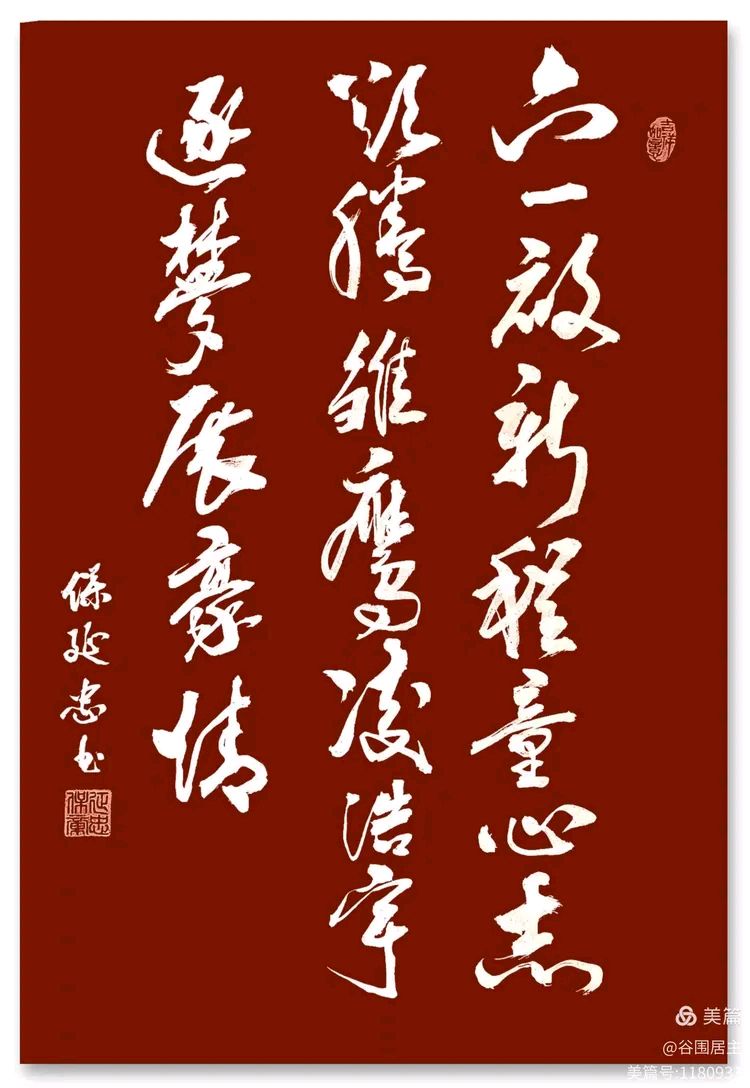 六一啟新程童心志
欲腾雏鹰凌浩宇
逐梦展豪情
保延忠书
美篇
@谷围居主
美篇号:1180933